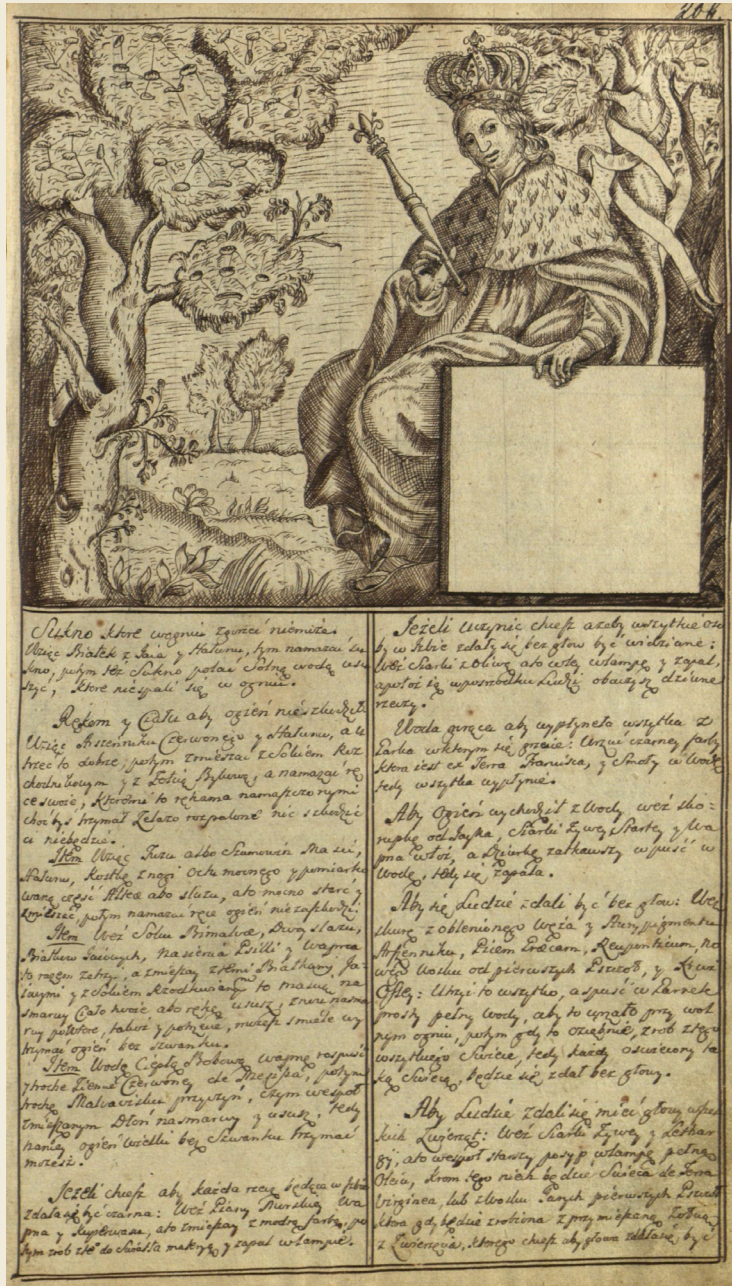 204.
Sukno które w ogniu zgorzeć niemoże.
Wziąc Białek z Jaia y Hałunu, tym namazać su
kno, potym też Sukno polać Słoną wodą usu
szyć, które niespali się w ogniu.
Rękom y Ciału aby ogień nieszkodził
Wziąc Arszenniku Czerwonego y Hałunu, a u
trzec to dobrze, potym zmieszać z Sokiem
y z Żołcią Bykową, a namazać rę
ce swoie, to rękama namaszczonymi
choćbys trzymał Żelazo rozpalone nic szkodzić
ci niebędzie.
Item Wziąc albo Szumowin
Hałunu, Octu mocnego y pomiarko
waną część abo ato mocno starć y
zmieszać, potym namazać ręce ogień niezaszkodzi.
Item Weź Soku Bimalvæ, Dwoy slazu,
Białkow Iaiowych, nasienia Psilli y Wapna
to razem zetrzy, a zmieszay z temi Białkamy Ja
iowymi y z Sokiem Rzodkwianym to mascią na
smaruy Ciało twoie abo rękę ususz, znowu nasma
ruy powtore, takoż y potrzecie, możesz smiele wy
trzymać ogień bez szwanku.
Item Wodę Ciepłą Bobową wapnę rospuść
y troche Ziemie Czerwoney de potym
trochę Malvavisku przyczyń, czym wespoł
zmieszanym Dłoń nasmaruy y ususz, tedy
naniey ogień wielki bez Szwanku trzymać
możesz.
Jeżeli chcesz aby każda rzecz będąca w Izbie
zdała się być czarna: Weź Piany Morskiey
y Kuperwasu, ato zmieszay z modrą farbą, po
tym zrob do Swiatła materyą y zapal w lampie.
Jeżeli uczynic chcesz azeby wszytkie oso
by w Izbie zdały się bez głow być widziane:
Weź Siarki z Oliwą ato wley w lampę y zapal,
apołoż ią w posrzodku Ludzi obaczysz dziwne
rzeczy.
Woda goręca aby wypłyneło wszytka z
Garka w ktorym się grzeie: Wrzuć czarney farby
ktora iest ex Terra Francisca, y Smoły w Wodę
tedy wszytka wypłynie.
Aby Ogień wychodził z Wody weź sko=
rupkę od Jayka, Siarki żywey Startey y Wa
pna włoż, a Dziurkę zatkawszy wpuść w
Wodę, tedy się zapala.
Aby się Ludzie zdali być bez głow: Weź
skurę z oblenionego Węża y Auripigmentu
Arszenniku, Picem Græcam, Reuponticum, no
wego Wosku od pierwszych Pszczoł, y Krwi
Osley: Utrzyi to wszytko, a spuść w Garnek
prosty pełny Wody, aby to wrzało przy wol
nym ogniu, potym gdy to oziębnie, zrob z tego
wszytkiego Swiecę, tedy każdy oswiecony ta
ką Swiecą, będzie się zdał bez głowy.
Aby Ludzie zdali się mieć głowy wszel
kich Zwierząt: Weź Siarki Żywey y Lethar
gÿ, ato wespoł starszy posyp w lampę pełną
Oleiu, krom tego niech będzie Swieca de Terra
Virginea, lub z Wosku Jarych pierwszych Pszczoł
ktora gdy będzie zrobiona z przymieszaną Żołcią
z Zwierzęcia, ktorego chcesz aby głowa zdała się być